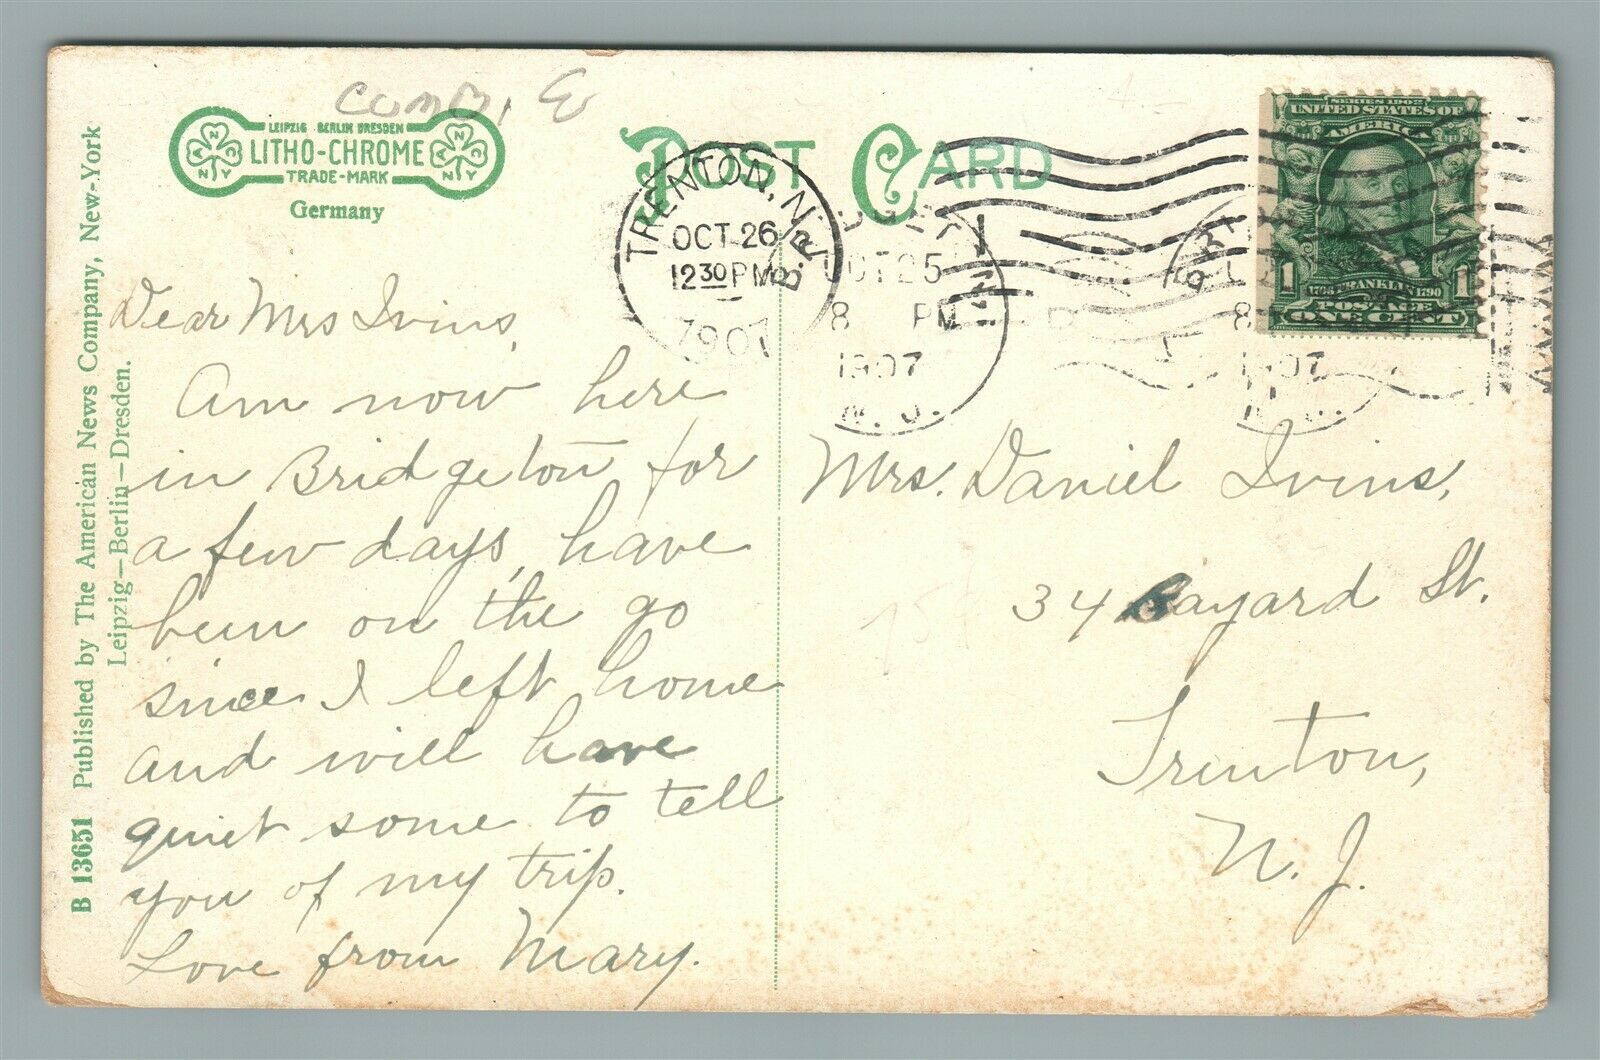 comb, E
LEIPZIG BERLIN DRESDEN
LITHO-CHROME
TRADE-MARK
Germany
POST CARD
SERIES 1902
UNITED STATES OF
AMERICA
1 1
1706 FRANKLIN 1790
POSTAGE
ONE CENT
TRENTON, N.J.
OCT 26
12 30 PM
1907
OCT 25
8 PM
1907
N.J.
8
1907
B 13651 Published by The American News Company, New-York
Leipzig—Berlin—Dresden.
Dear Mrs Ivins,
Am now here
in Bridgeton for
a few days, have
been on the go
since I left home
and will have
quiet some to tell
you of my trip.
Love from Mary.
Mrs. Daniel Ivins,
34 Bayard St.
Trenton,
N. J.